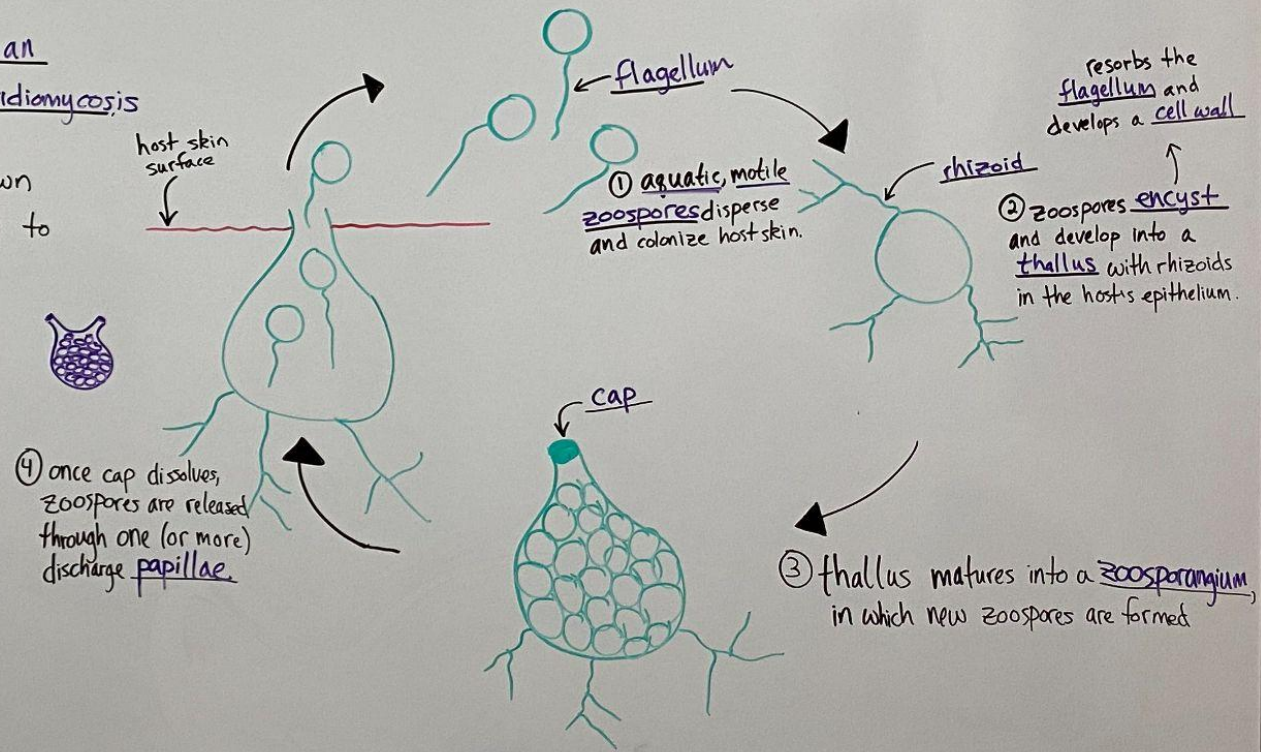 an
idiomycosis
wn
to
host skin
surface
flagellum
① aquatic, motile
zoospores disperse
and colonize host skin.
rhizoid
resorbs the
flagellum and
develops a cell wall
② zoospores encyst
and develop into a
thallus with rhizoids
in the host's epithelium.
cap
③ thallus matures into a zoosporangium,
in which new zoospores are formed
④ once cap dissolves,
zoospores are released
through one (or more)
discharge papillae.